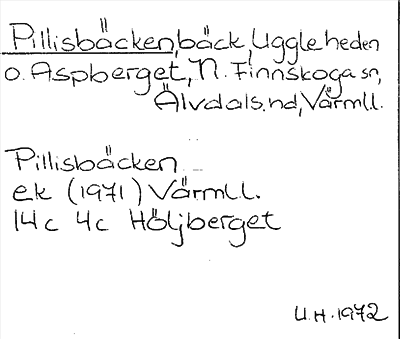 Pillisbäcken, bäck, Uggleheden
o. Aspberget, N. Finnskoga sn,
Älvdals hd, Värmll.
Pillisbäcken
ek (1971) Värmll.
14c 4c Höljberget
U.H. 1972